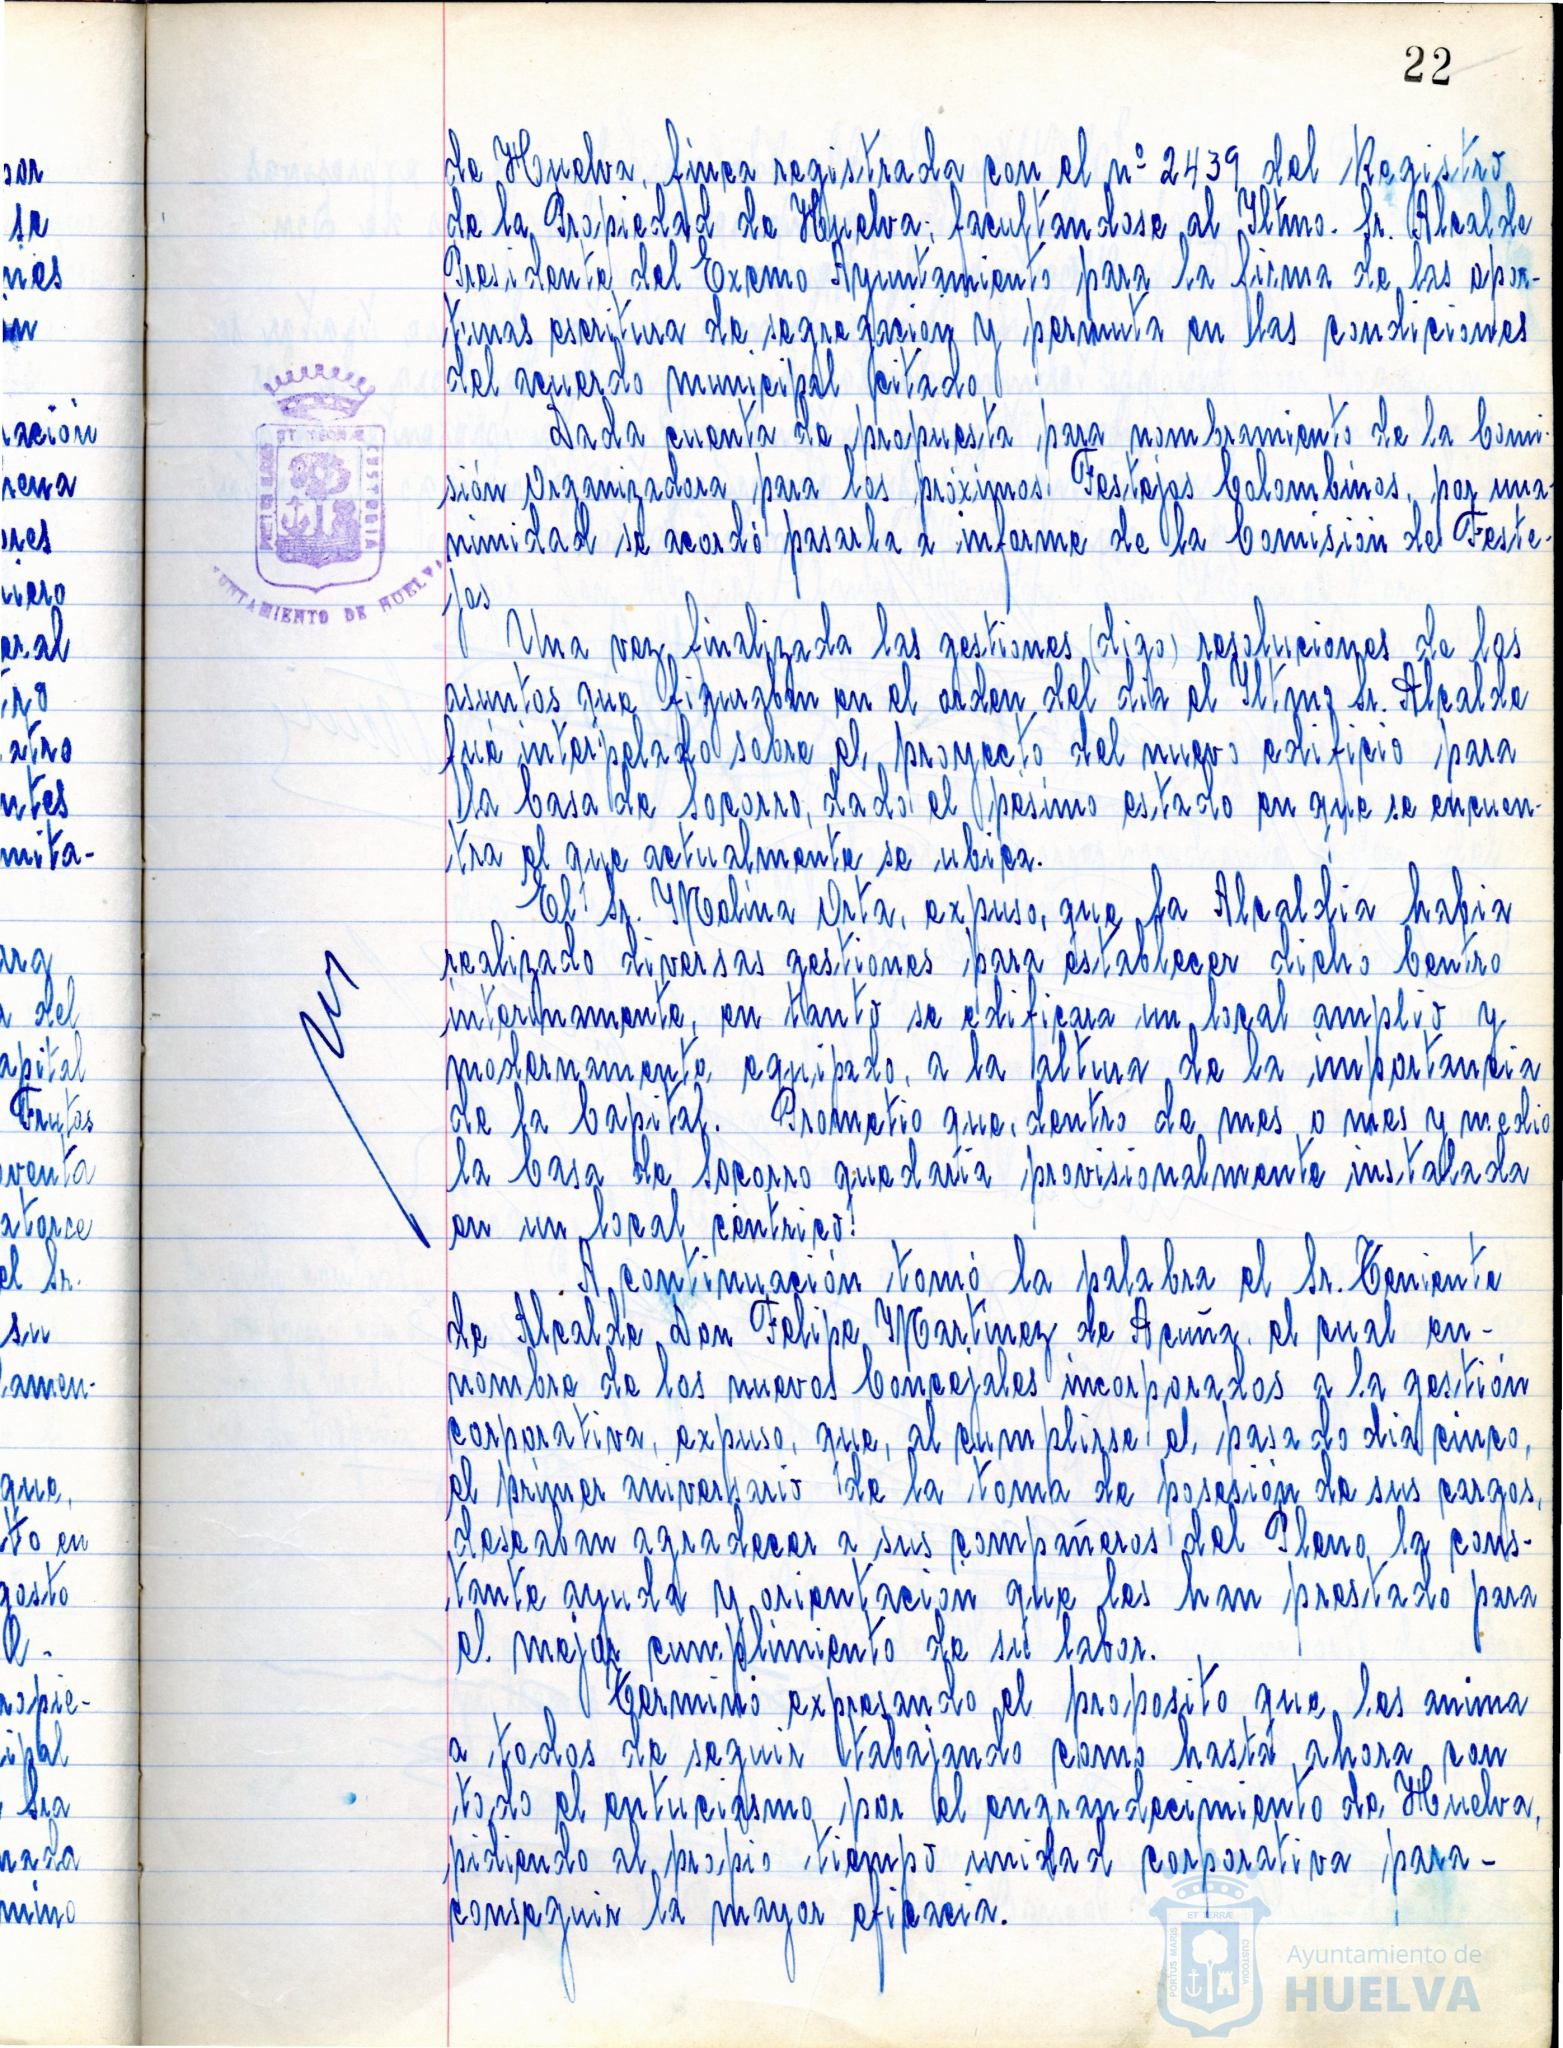 22
de Huelva, finca registrada con el nº 2439 del Registro
de la Propiedad de Huelva; facultandose al Iltmo. Sr. Alcalde
Presidente del Excmo Ayuntamiento para la firma de las opor-
tunas escritura de segregación y permuta en las condiciones
del acuerdo municipal citado.
Dada cuenta de propuesta para nombramiento de la Comi-
sión Organizadora para los próximos Festejos Colombinos, por una-
nimidad se acordó pasarla a informe de la Comisión de Feste-
jos
Una vez finalizada las gestiones (digo) resoluciones de los
asuntos que figuraban en el orden del dia el Iltmo Sr. Alcalde
fué interpelado sobre el proyecto del nuevo edificio para
la Casa de Socorro, dado el pésimo estado en que se encuen-
tra el que actualmente se ubica.
El Sr. Molina Orta, expuso, que la Alcaldia habia
realizado diversas gestiones para establecer dicho Centro
internamente, en tanto se edificara un local amplio y
modernamente equipado, a la altura de la importancia
de la Capital. Prometio que, dentro de mes o mes y medio
la Casa de Socorro quedaría provisionalmente instalada
en un local céntrico.
A continuación tomó la palabra el Sr. Teniente
de Alcalde Don Felipe Martinez de Acuña, el cual en-
nombre de los nuevos Concejales incorporados a la gestión
corporativa, expuso, que, al cumplirse el pasado dia cinco,
el primer aniversario de la toma de posesión de sus cargos,
deseaban agradecer a sus compañeros del Pleno la cons-
tante ayuda y orientación que les han prestado para
el mejor cumplimiento de su labor.
Terminó expresando el proposito que les anima
a todos de seguir tabajando como hasta ahora con
todo el entuciasmo por el engrandecimiento de Huelva,
pidiendo al propio tiempo unidad corporativa para-
conseguir la mayor eficacia.
UNTAMIENTO DE HUELVA
PORTUS MARIS ET TERRÆ CUSTODIA
Ayuntamiento de
HUELVA